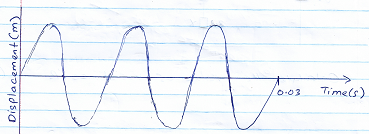 Displacement(m)
0.03
Time(s)